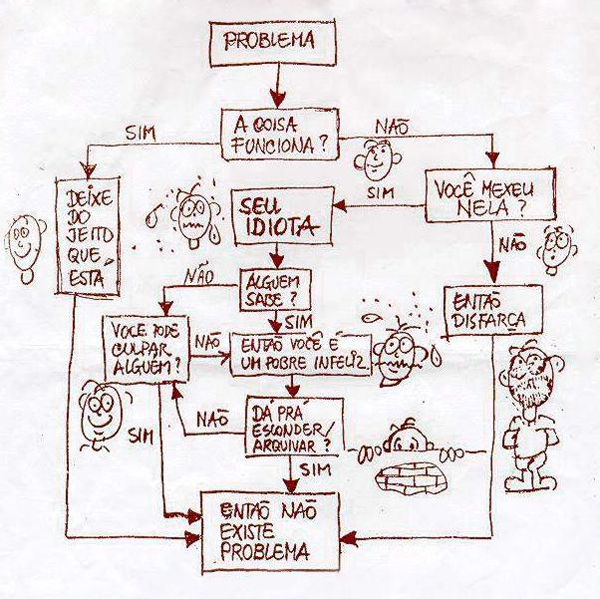 PROBLEMA
A COISA
FUNCIONA?
SIM
NÃO
DEIXE
DO
JEITO
QUE
ESTÁ
SEU
IDIOTA
SIM
VOCÊ MEXEU
NELA?
NÃO
ALGUEM
SABE?
NÃO
SIM
ENTÃO
DISFARÇA
VOCE PODE
CULPAR
ALGUEM?
NÃO
ENTÃO VOCÊ É
UM POBRE INFELIZ
DÁ PRÁ
ESCONDER/
ARQUIVAR?
NÃO
SIM
SIM
ENTÃO NÃO
EXISTE
PROBLEMA